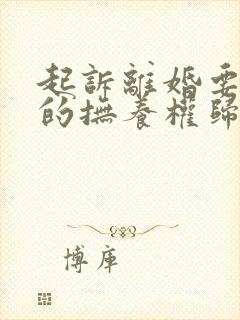 起訴離婚要
的撫養權歸
博庫